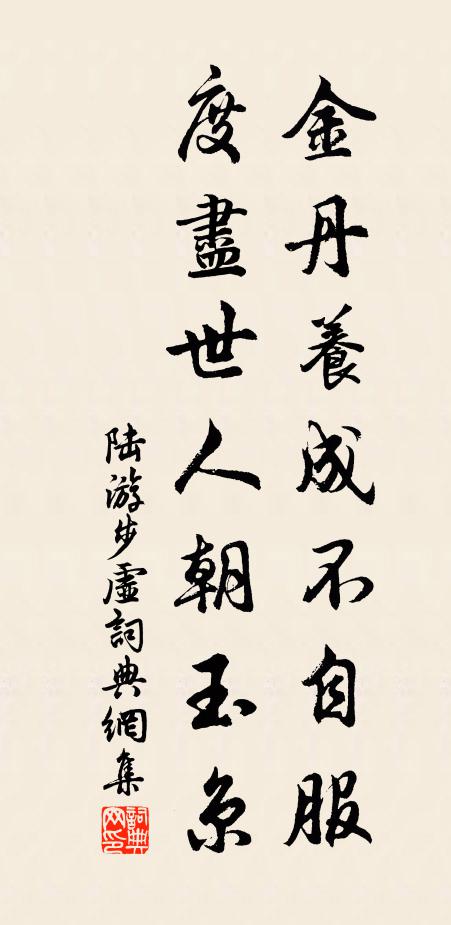 金丹養成不自服
度盡世人朝玉京
陆游步虛詞典網集
詞典網印